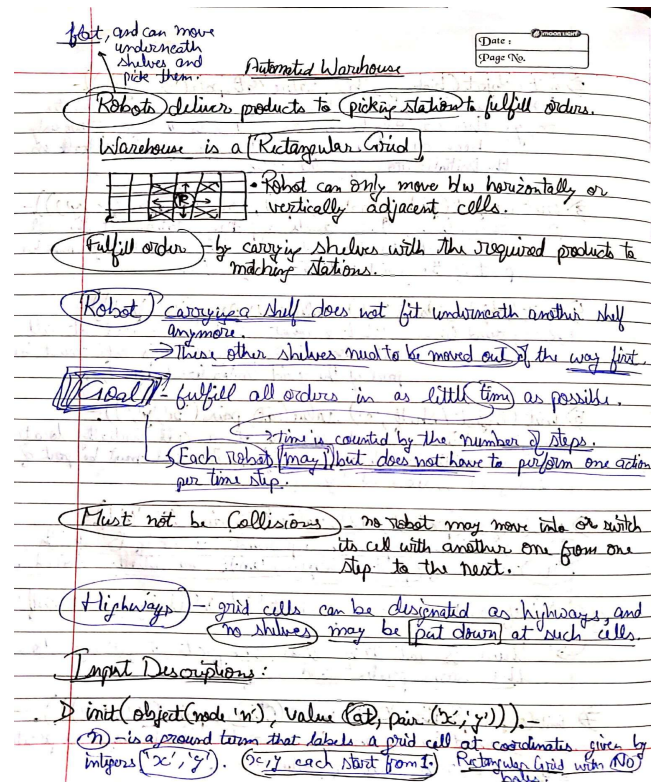 flat, and can move
underneath
shelves and
pick them.
MOON LIGHT
Date :
Page No.
Automated Warehouse
Robots deliver products to picking station to fulfill orders.
Warehouse is a Rectangular Grid
R
• Robot can only move b/w horizontally or
vertically adjacent cells.
Fulfill order - by carrying shelves with the required products to
matching stations.
Robot carrying a shelf does not fit underneath another shelf
anymore.
⇒ These other shelves need to be moved out of the way first.
Goal - fulfill all orders in as little time as possible.
→ time is counted by the number of steps.
→ Each robot may but does not have to perform one action
per time step.
Must not be Collisions - no robot may move into or switch
its cell with another one from one
step to the next.
Highways - grid cells can be designated as highways, and
no shelves may be put down at such cells.
Input Descriptions:
1) init(object(node 'n'), value (at, pair ('x','y'))). -
n - is a ground term that labels a grid cell at coordinates given by
integers ('x','y'). (x,y each start from 1. Rectangular Grid with NO
holes.